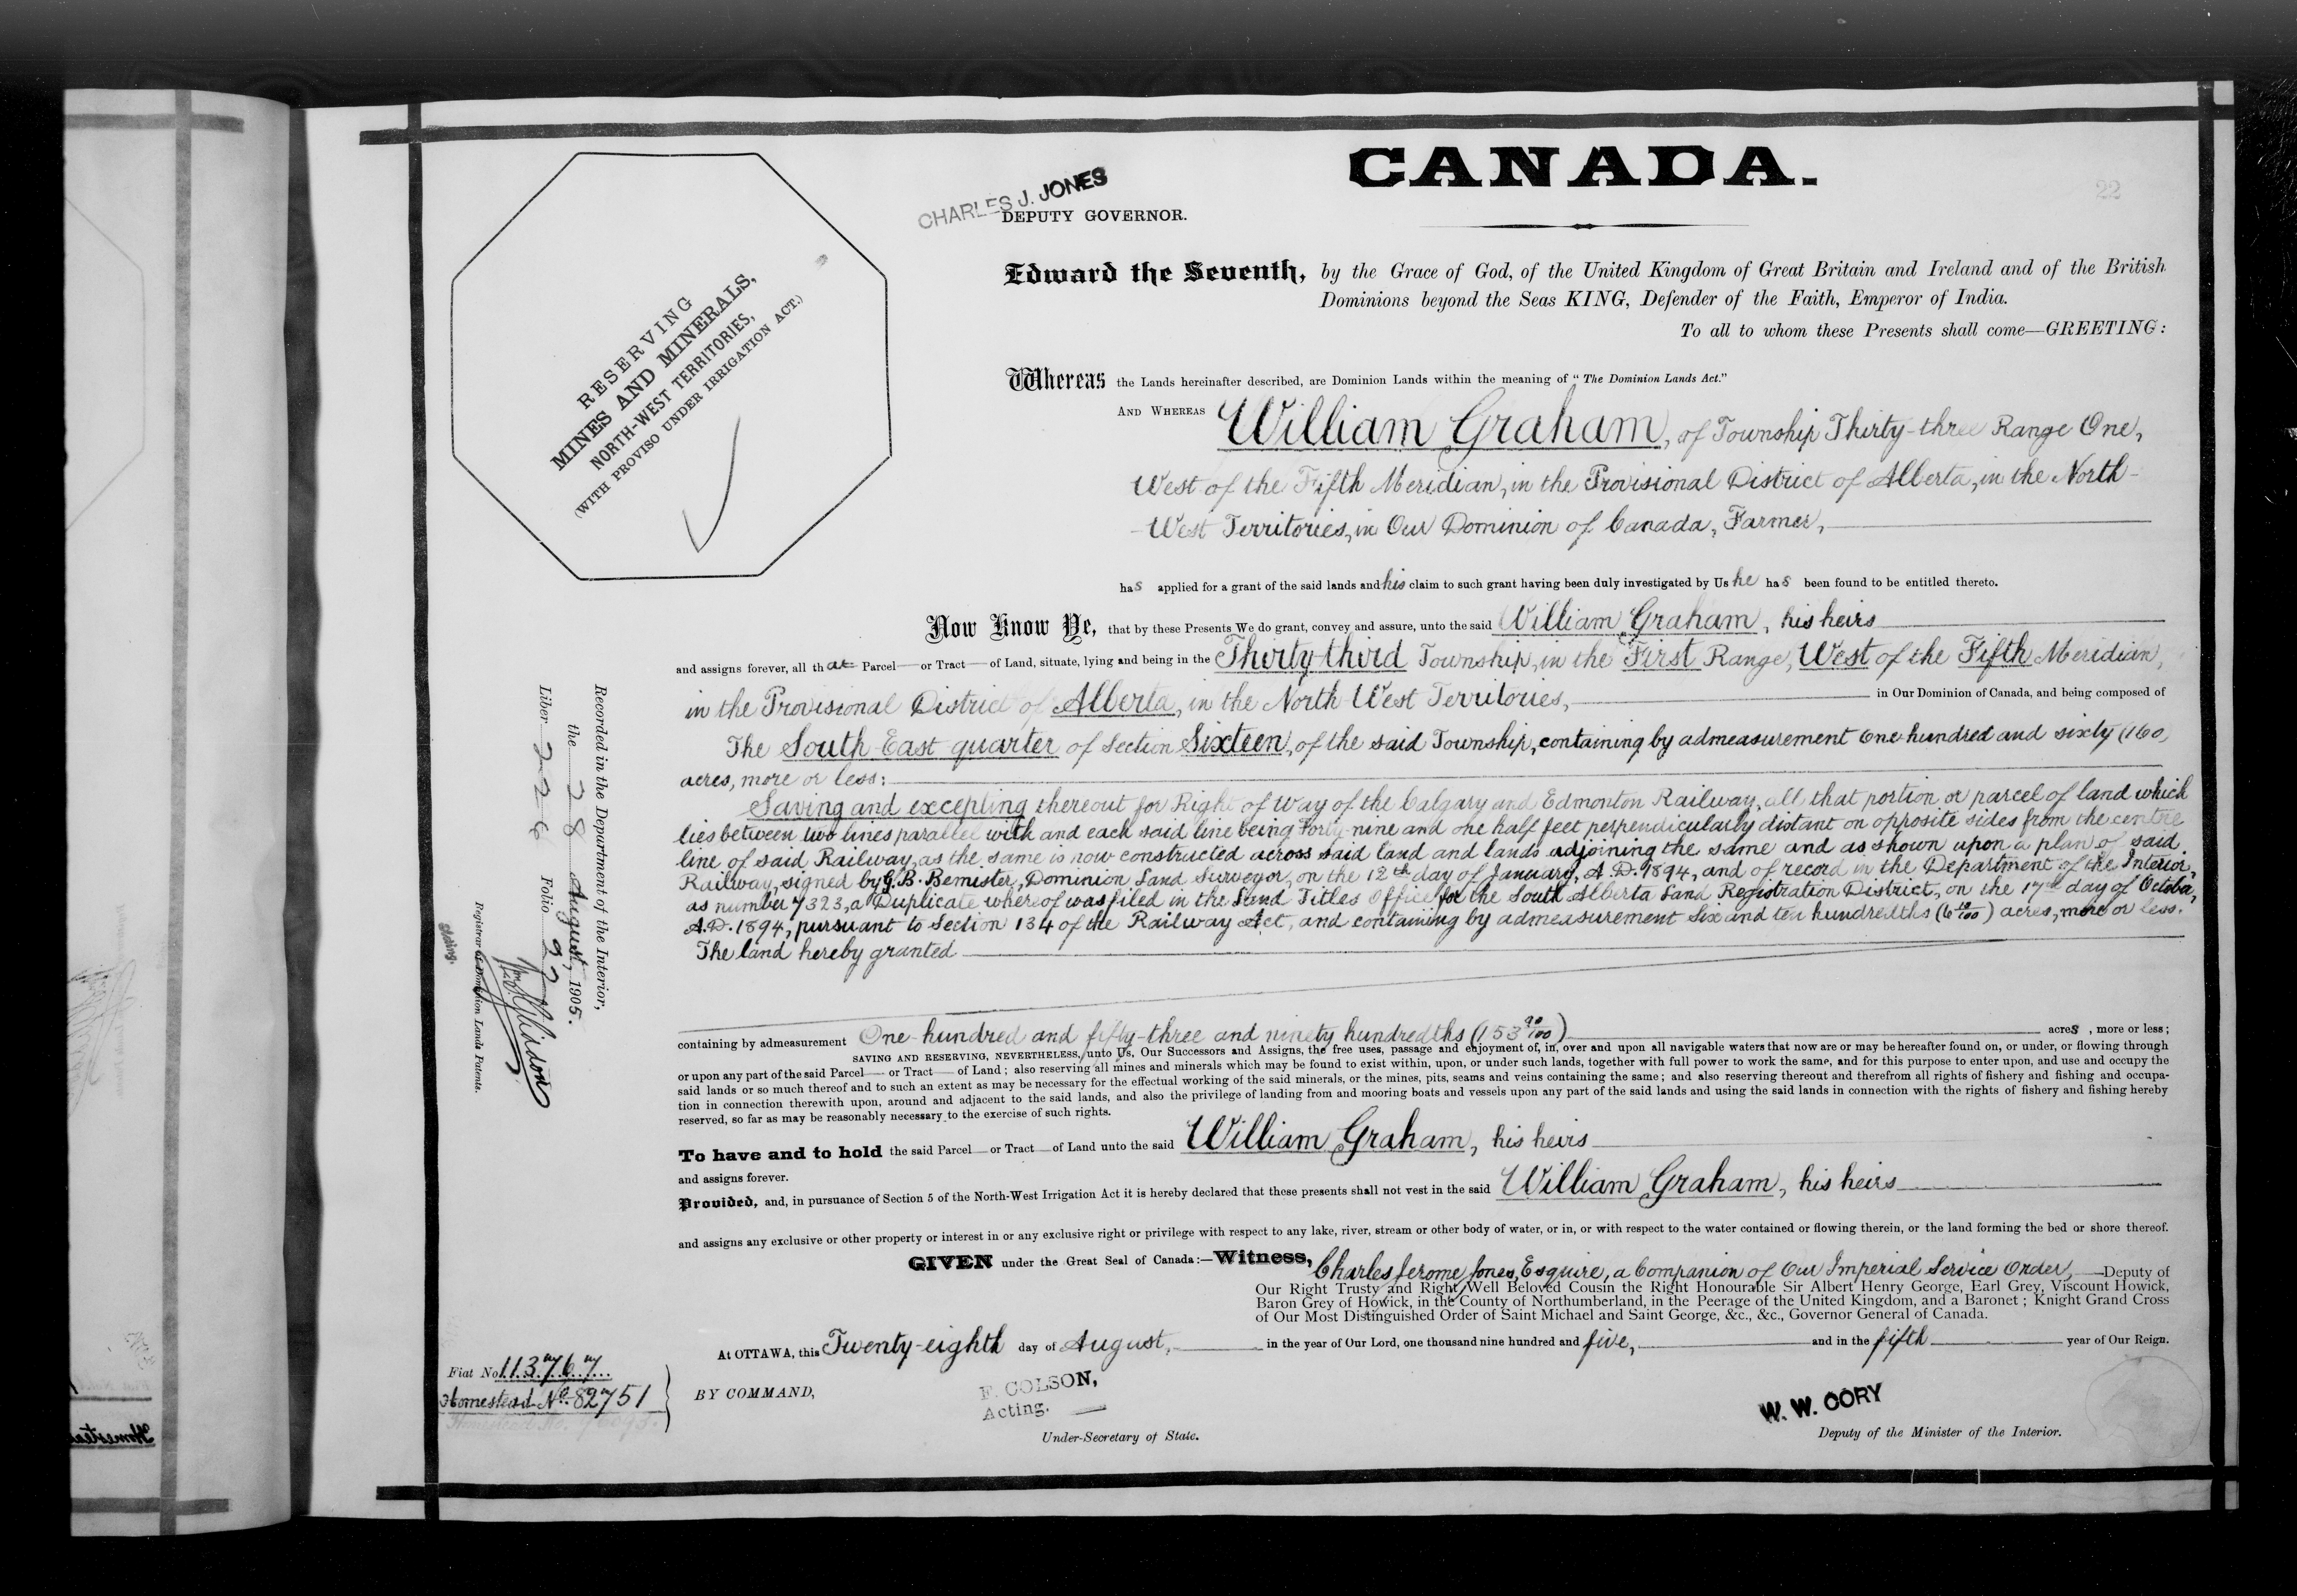 CANADA.
22
CHARLES J. JONES
DEPUTY GOVERNOR.
RESERVING
MINES AND MINERALS,
NORTH-WEST TERRITORIES,
(WITH PROVISO UNDER IRRIGATION ACT.)
Edward the Seventh, by the Grace of God, of the United Kingdom of Great Britain and Ireland and of the British
Dominions beyond the Seas KING, Defender of the Faith, Emperor of India.
To all to whom these Presents shall come—GREETING:
Whereas the Lands hereinafter described, are Dominion Lands within the meaning of "The Dominion Lands Act."
AND WHEREAS William Graham, of Township Thirty-three Range One,
West of the Fifth Meridian, in the Provisional District of Alberta, in the North-
-West Territories, in Our Dominion of Canada, Farmer,
has applied for a grant of the said lands and his claim to such grant having been duly investigated by Us he has been found to be entitled thereto.
Now Know Ye, that by these Presents We do grant, convey and assure, unto the said William Graham, his heirs
and assigns forever, all that Parcel— or Tract— of Land, situate, lying and being in the Thirty-third Township, in the First Range, West of the Fifth Meridian,
in the Provisional District of Alberta, in the North-West Territories, in Our Dominion of Canada, and being composed of
The South East quarter of Section Sixteen, of the said Township, containing by admeasurement One hundred and sixty (160)
acres, more or less:
Saving and excepting thereout for Right of Way of the Calgary and Edmonton Railway, all that portion or parcel of land which
lies between two lines parallel with and each said line being Forty-nine and one half feet perpendicularly distant on opposite sides from the centre
line of said Railway, as the same is now constructed across said land and lands adjoining the same and as shown upon a plan of said
Railway, signed by G. B. Bemister, Dominion Land Surveyor, on the 12th day of January, A.D. 1894, and of record in the Department of the Interior,
as number 7323, a Duplicate whereof was filed in the Land Titles Office for the South Alberta Land Registration District, on the 17th day of October,
A.D. 1894, pursuant to Section 134 of the Railway Act, and containing by admeasurement Six and ten hundredths (6 10/100) acres, more or less.
The land hereby granted
containing by admeasurement One hundred and fifty-three and ninety hundredths (153 90/100) acres, more or less;
SAVING AND RESERVING, NEVERTHELESS, unto Us, Our Successors and Assigns, the free uses, passage and enjoyment of, in, over and upon all navigable waters that now are or may be hereafter found on, or under, or flowing through
or upon any part of the said Parcel— or Tract— of Land; also reserving all mines and minerals which may be found to exist within, upon, or under such lands, together with full power to work the same, and for this purpose to enter upon, and use and occupy the
said lands or so much thereof and to such an extent as may be necessary for the effectual working of the said minerals, or the mines, pits, seams and veins containing the same; and also reserving thereout and therefrom all rights of fishery and fishing and occupa-
tion in connection therewith upon, around and adjacent to the said lands, and also the privilege of landing from and mooring boats and vessels upon any part of the said lands and using the said lands in connection with the rights of fishery and fishing hereby
reserved, so far as may be reasonably necessary to the exercise of such rights.
To have and to hold the said Parcel— or Tract— of Land unto the said William Graham, his heirs
and assigns forever.
Provided, and, in pursuance of Section 5 of the North-West Irrigation Act it is hereby declared that these presents shall not vest in the said William Graham, his heirs
and assigns any exclusive or other property or interest in or any exclusive right or privilege with respect to any lake, river, stream or other body of water, or in, or with respect to the water contained or flowing therein, or the land forming the bed or shore thereof.
GIVEN under the Great Seal of Canada:—Witness, Charles Jerome Jones, Esquire, a Companion of Our Imperial Service Order, Deputy of
Our Right Trusty and Right Well Beloved Cousin the Right Honourable Sir Albert Henry George, Earl Grey, Viscount Howick,
Baron Grey of Howick, in the County of Northumberland, in the Peerage of the United Kingdom, and a Baronet; Knight Grand Cross
of Our Most Distinguished Order of Saint Michael and Saint George, &c., &c., Governor General of Canada.
At OTTAWA, this Twenty-eighth day of August, in the year of Our Lord, one thousand nine hundred and five, and in the fifth year of Our Reign.
BY COMMAND,
F. COLSON,
Acting.
Under-Secretary of State.
W. W. CORY
Deputy of the Minister of the Interior.
Fiat No. 113767
Homestead No. 82751
Recorded in the Department of the Interior,
the 28 August, 1905.
Liber 226 Folio 92
Registrar of Dominion Lands Patents.
Acting.
Homestead